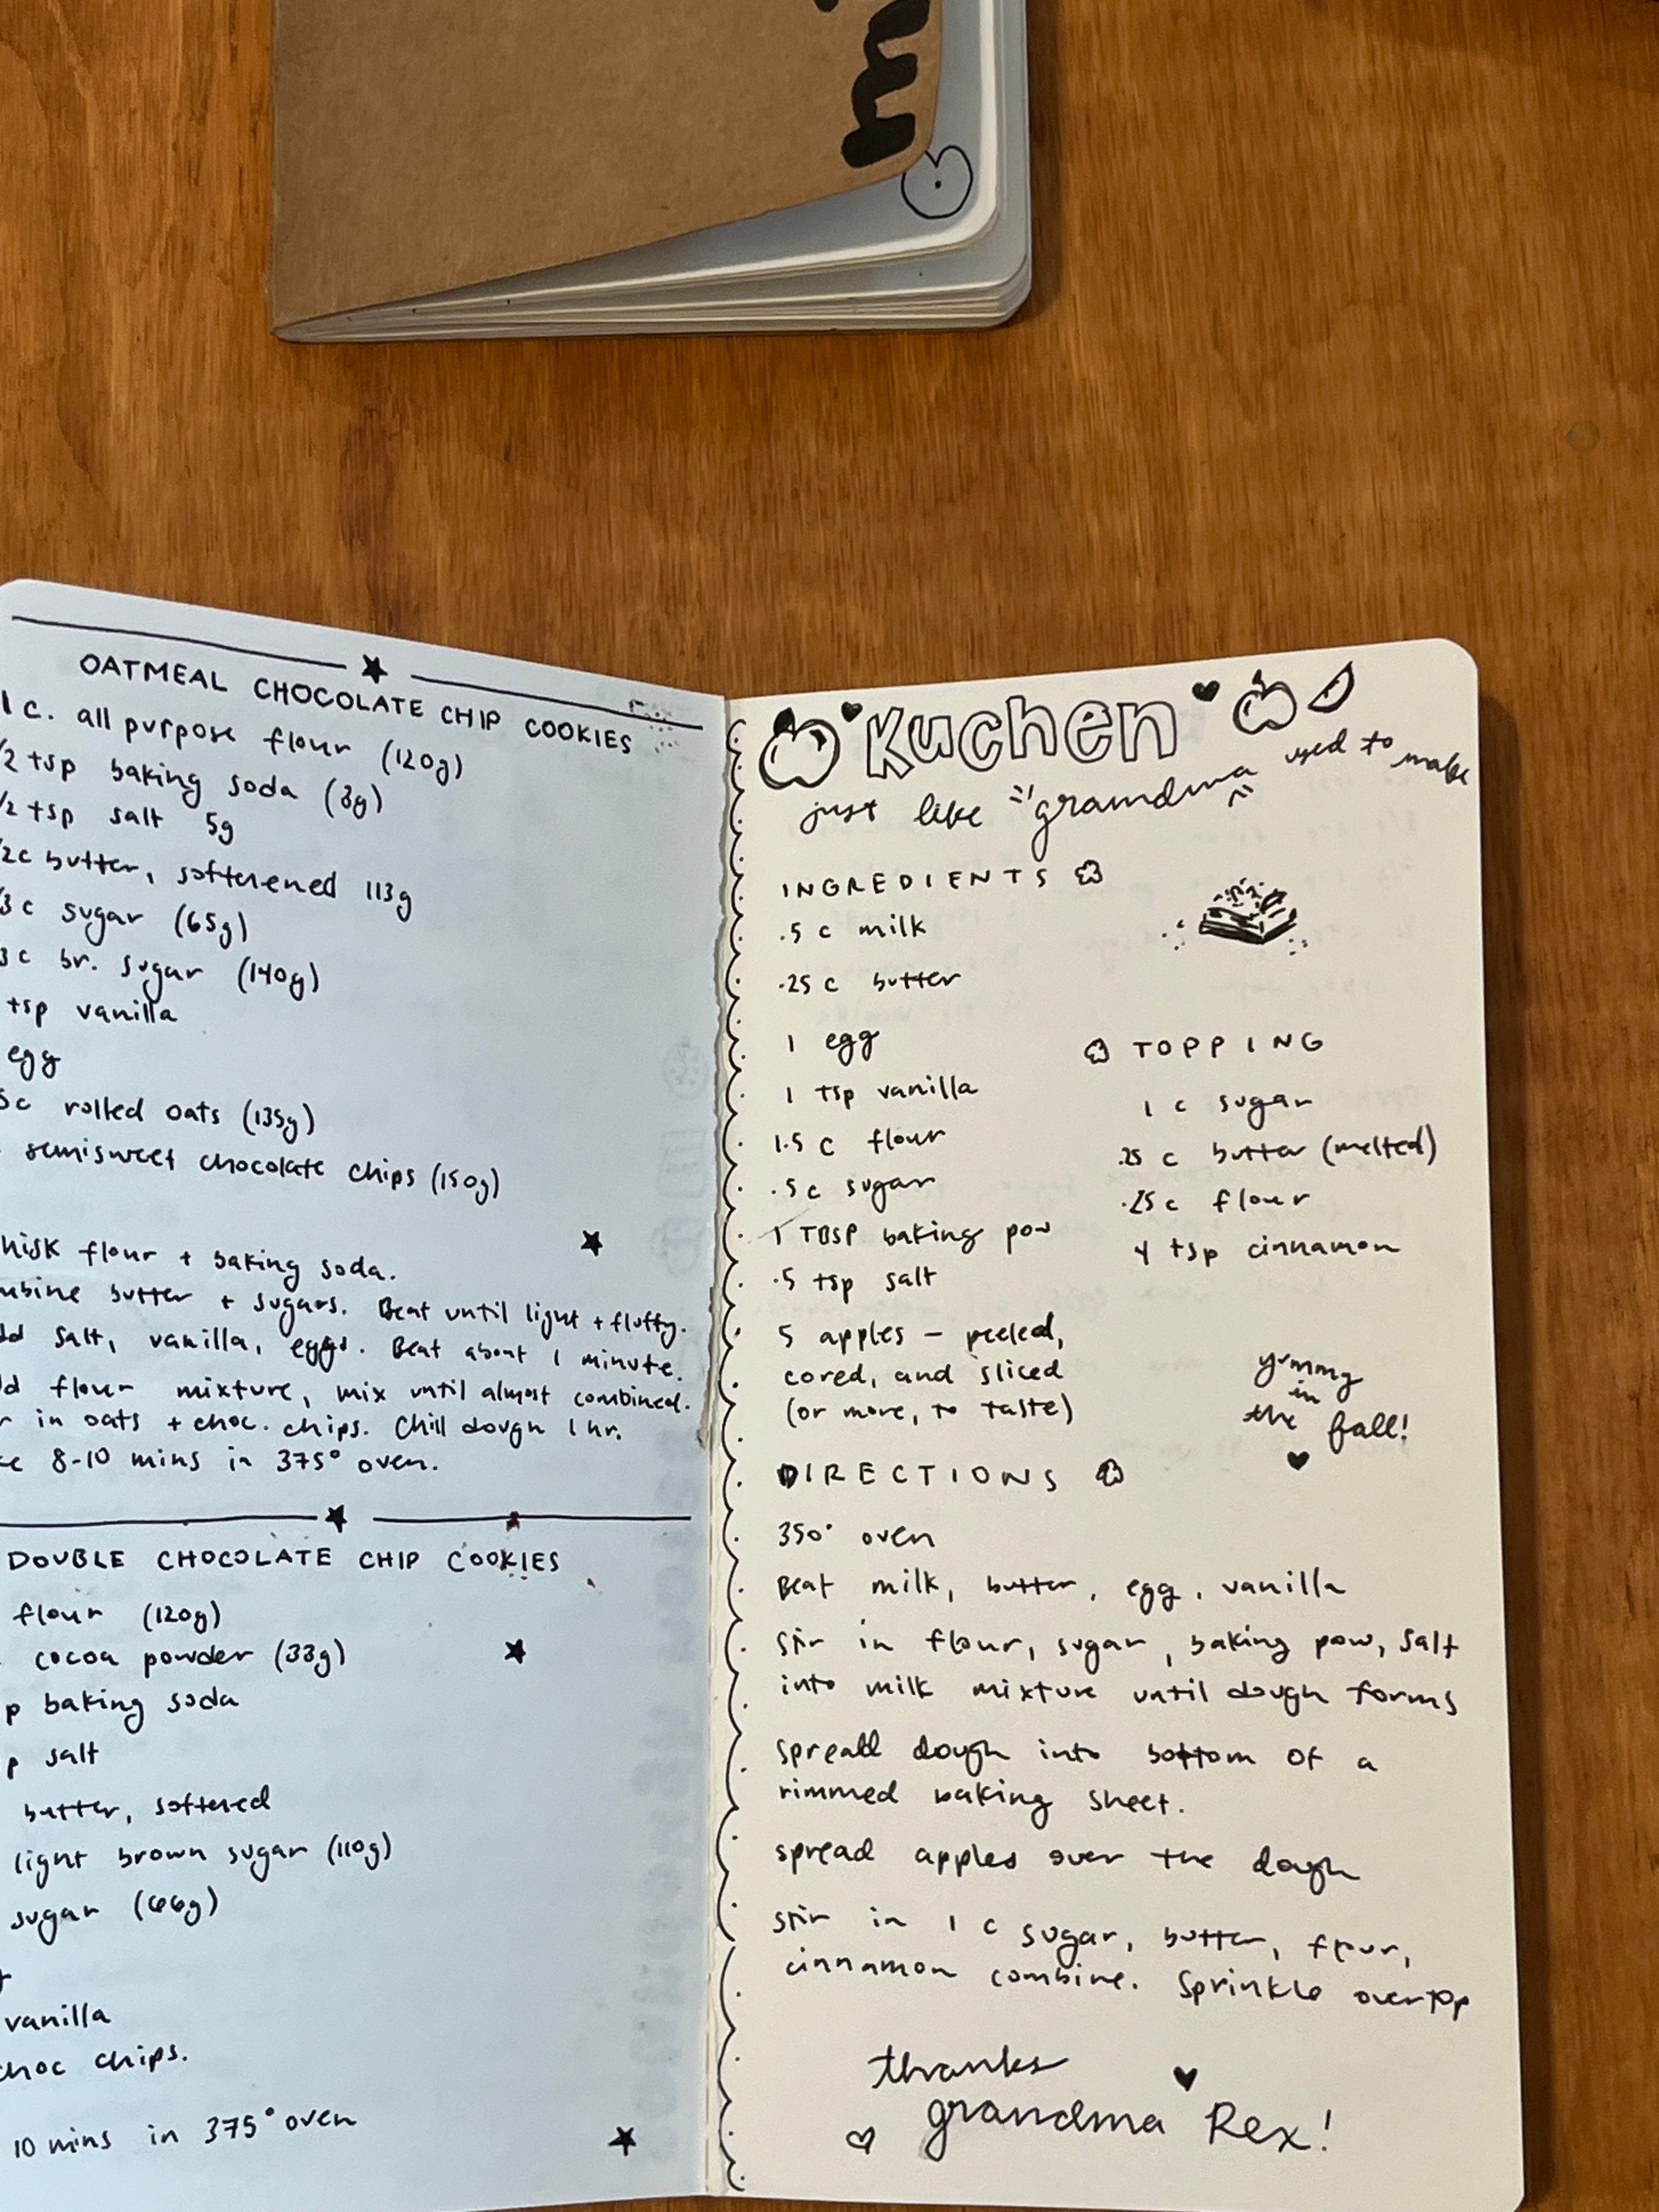 OATMEAL CHOCOLATE CHIP COOKIES
1 c. all purpose flour (120g)
/2 tsp baking soda (3g)
/2 tsp salt 5g
/2c butter, softened 113g
/3 c sugar (65g)
3c br. sugar (140g)
tsp vanilla
egg
5c rolled oats (135g)
semisweet chocolate chips (150g)
hisk flour + baking soda.
mbine butter + sugars. Beat until light + fluffy.
dd salt, vanilla, eggs. Beat about 1 minute.
dd flour mixture, mix until almost combined.
r in oats + choc. chips. Chill dough 1 hr.
ke 8-10 mins in 375° oven.
DOUBLE CHOCOLATE CHIP COOKIES
flour (120g)
cocoa powder (33g)
p baking soda
p salt
butter, softened
light brown sugar (110g)
sugar (66g)
vanilla
choc chips.
10 mins in 375° oven
Kuchen
just like "grandma" used to make
INGREDIENTS
.5 c milk
.25 c butter
1 egg
1 tsp vanilla
1.5 c flour
.5 c sugar
1 TBSP baking pow
.5 tsp salt
5 apples - peeled,
cored, and sliced
(or more, to taste)
TOPPING
1 c sugar
.25 c butter (melted)
.25 c flour
4 tsp cinnamon
yummy
in
the fall!
DIRECTIONS
350° oven
Beat milk, butter, egg, vanilla
Stir in flour, sugar, baking pow, salt
into milk mixture until dough forms
spread dough into bottom of a
rimmed baking sheet.
spread apples over the dough
stir in 1 c sugar, butter, flour,
cinnamon combine. Sprinkle overtop
thanks
grandma Rex!